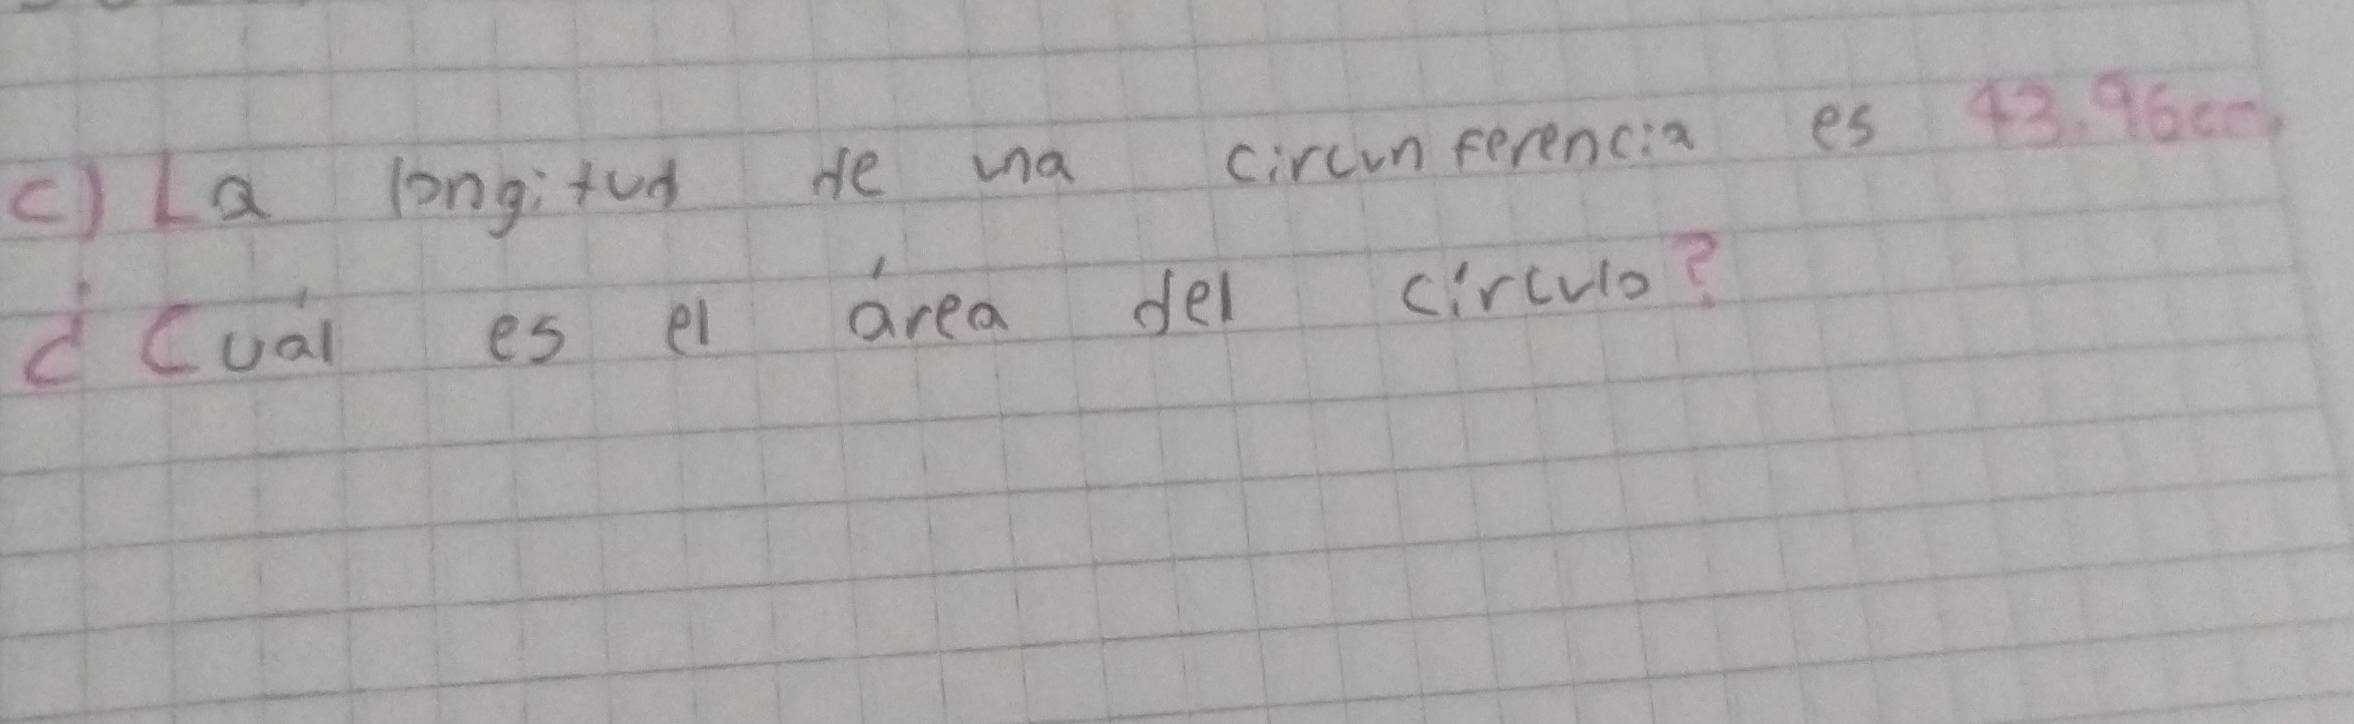 c) La longitud de una circunferencia es 43.96cm.
¿Cuál es el área del círculo?